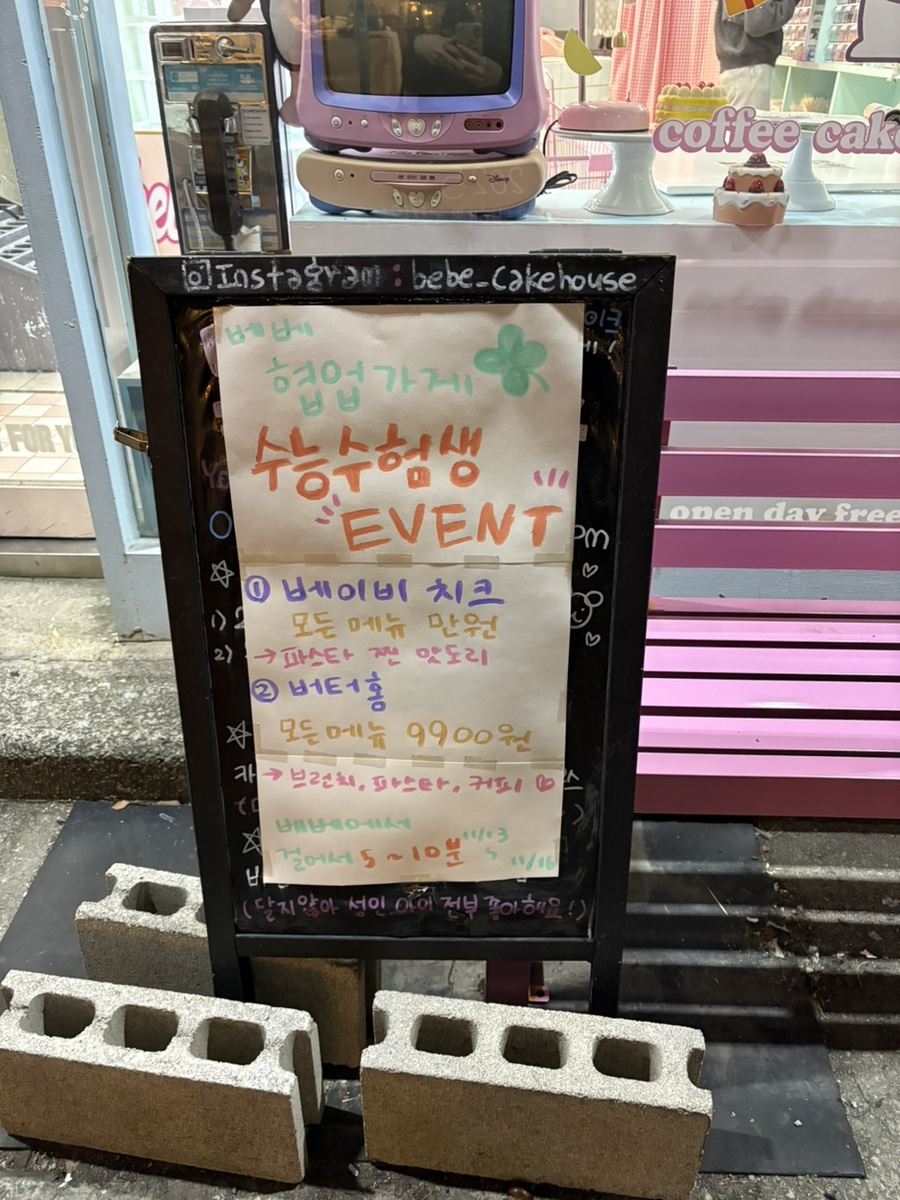 coffee cake
Instagram : bebe_cakehouse
베베
협업가게
수능수험생
EVENT
① 베이비 치크
모든 메뉴 만원
→ 파스타 찐 맛도리
② 버터홈
모든메뉴 9900원
→ 브런치, 파스타, 커피
베베에서
걸어서 5~10분
11/13
~ 11/16
(달지않아 성인.아이 전부 좋아해요!)
1)
2)
open day free
FOR